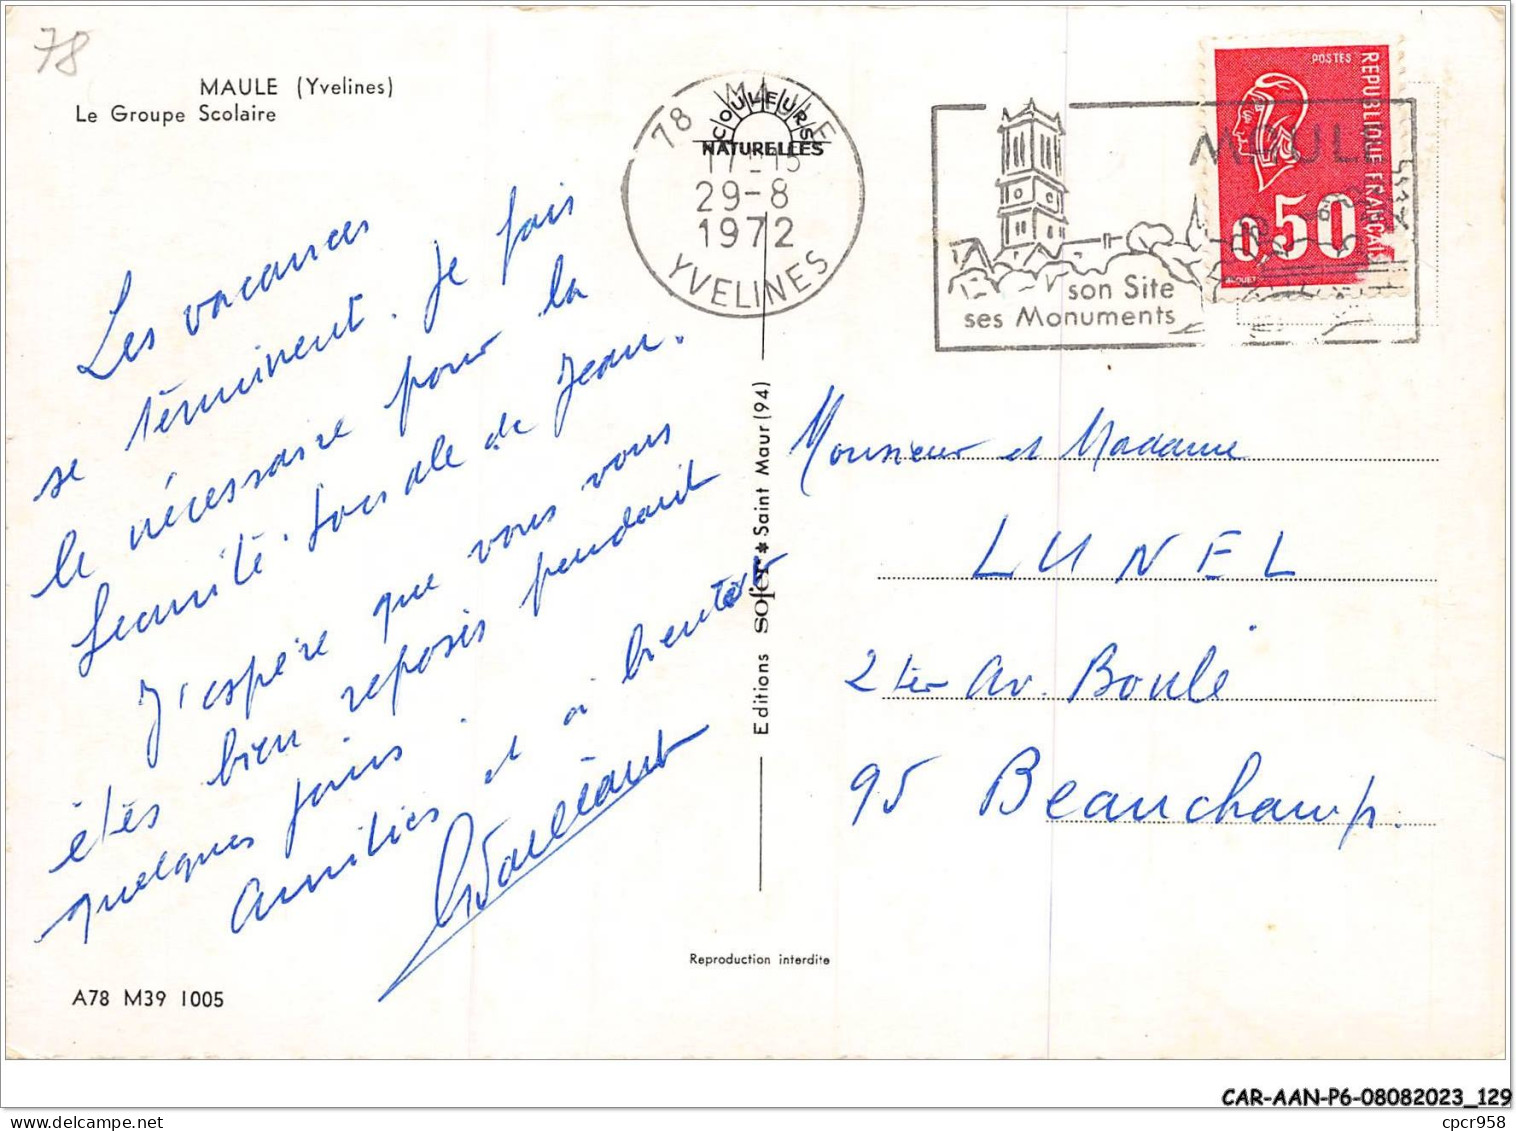 78
MAULE (Yvelines)
Le Groupe Scolaire
Les vacances
se términent. Je fais
le nécessaire pour la
Sécurité Sociale de Jean.
J'espère que vous vous
êtes bien reposés pendant
quelques jours
Amitiés et à bientôt
A78 M39 1005
78 MAULE
17-15
29-8
1972
YVELINES
COULEURS
NATURELLES
MAULE
son Site
ses Monuments
POSTES
REPUBLIQUE FRANÇAISE
0,50
BEQUET
Editions sofer * Saint Maur (94)
Reproduction interdite
Monsieur et Madame
LUNEL
2 ter Av. Boulé
95 Beauchamp.
CAR-AAN-P6-08082023_129
cpcr958